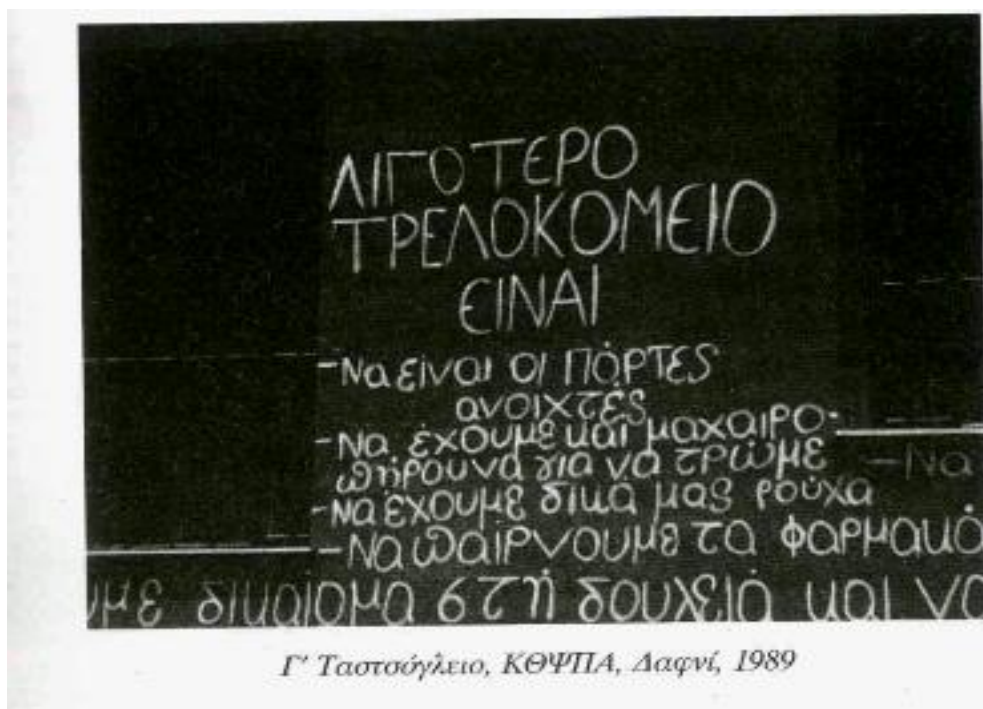 ΛΙΓΟΤΕΡΟ
ΤΡΕΛΟΚΟΜΕΙΟ
ΕΙΝΑΙ
-Να είναι οι ΠΌΡΤΕΣ
ανοιχτές
-Να έχουμε και μαχαιρο-
πήρουνα για να τρώμε
-Να
-Να έχουμε δικά μας ρούχα
-Να παίρνουμε τα φάρμακά
με δικαίωμα στη δουλειά και να
Γ' Ταστσόγλειο, ΚΘΨΠΑ, Δαφνί, 1989